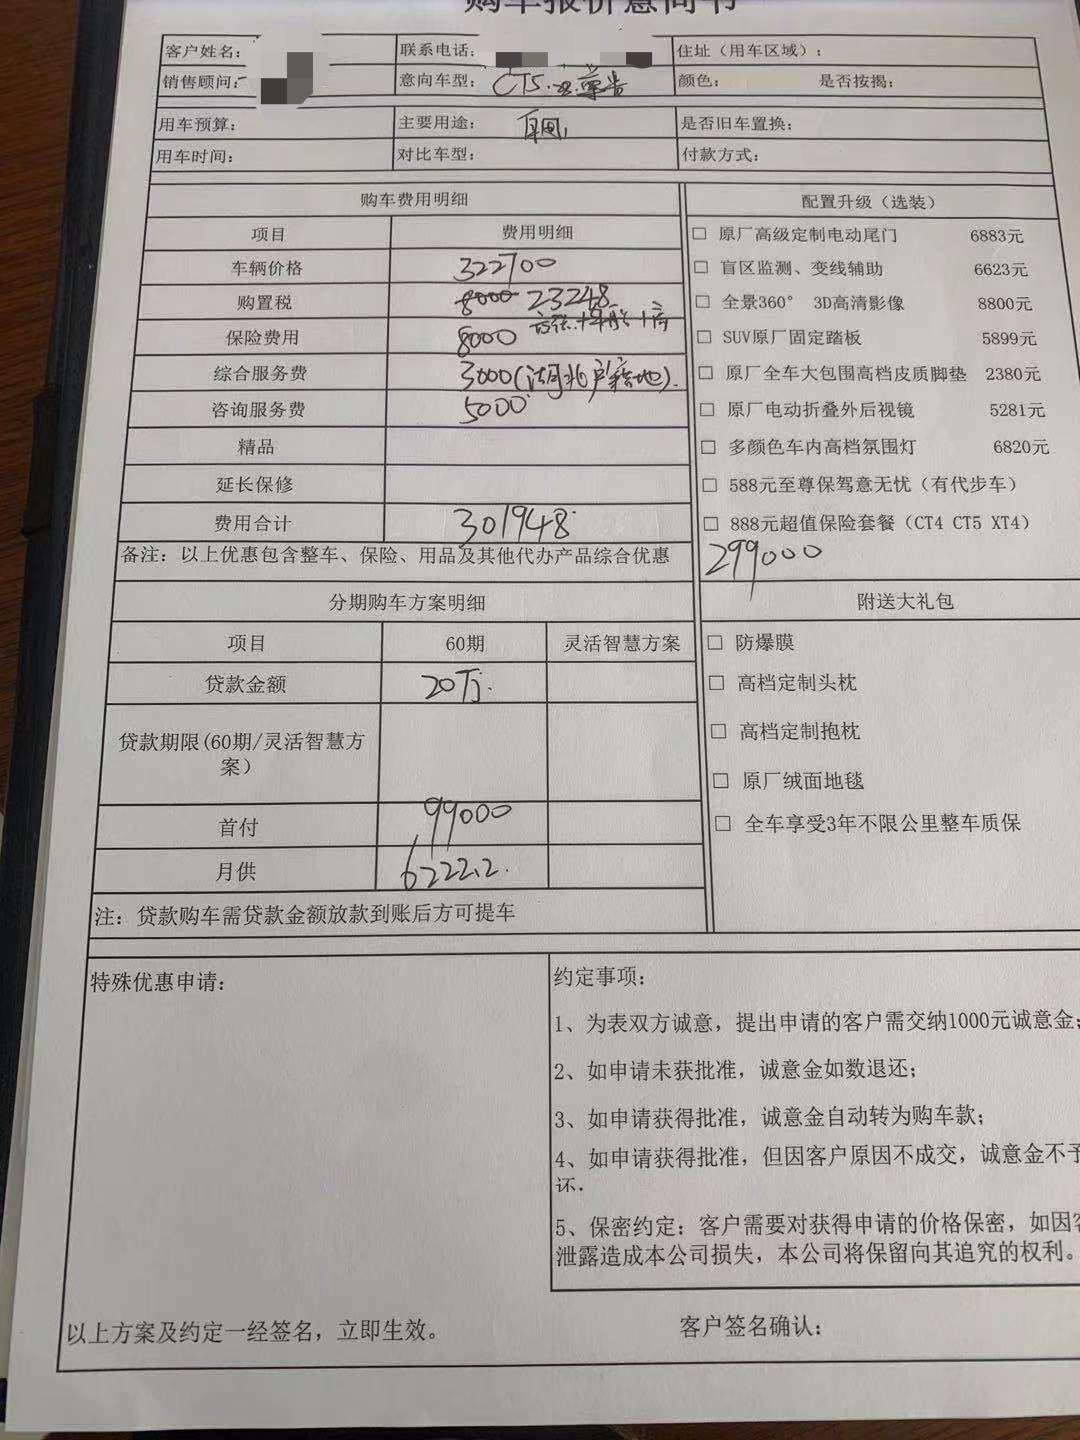 购车报价意向书
客户姓名: 联系电话: 住址（用车区域）:
销售顾问: 意向车型: CT5. 尊贵 颜色: 是否按揭:
用车预算: 主要用途: 是否旧车置换:
用车时间: 对比车型: 付款方式:
购车费用明细
项目 费用明细
车辆价格 322700
购置税 8000 23248
保险费用 8000
综合服务费 3000(湖北户籍地).
咨询服务费 5000
精品
延长保修
费用合计 301948
备注: 以上优惠包含整车、保险、用品及其他代办产品综合优惠
配置升级（选装）
□ 原厂高级定制电动尾门 6883元
□ 盲区监测、变线辅助 6623元
□ 全景360° 3D高清影像 8800元
□ SUV原厂固定踏板 5899元
□ 原厂全车大包围高档皮质脚垫 2380元
□ 原厂电动折叠外后视镜 5281元
□ 多颜色车内高档氛围灯 6820元
□ 588元至尊保驾意无忧（有代步车）
□ 888元超值保险套餐（CT4 CT5 XT4）
299000
分期购车方案明细
项目 60期 灵活智慧方案
贷款金额 20万.
贷款期限(60期/灵活智慧方
案）
首付 99000
月供 6222.2.
注: 贷款购车需贷款金额放款到账后方可提车
附送大礼包
□ 防爆膜
□ 高档定制头枕
□ 高档定制抱枕
□ 原厂绒面地毯
□ 全车享受3年不限公里整车质保
特殊优惠申请:
约定事项:
1、为表双方诚意，提出申请的客户需交纳1000元诚意金;
2、如申请未获批准，诚意金如数退还;
3、如申请获得批准，诚意金自动转为购车款;
4、如申请获得批准，但因客户原因不成交，诚意金不予
还.
5、保密约定: 客户需要对获得申请的价格保密，如因客
泄露造成本公司损失，本公司将保留向其追究的权利。
以上方案及约定一经签名，立即生效。
客户签名确认: